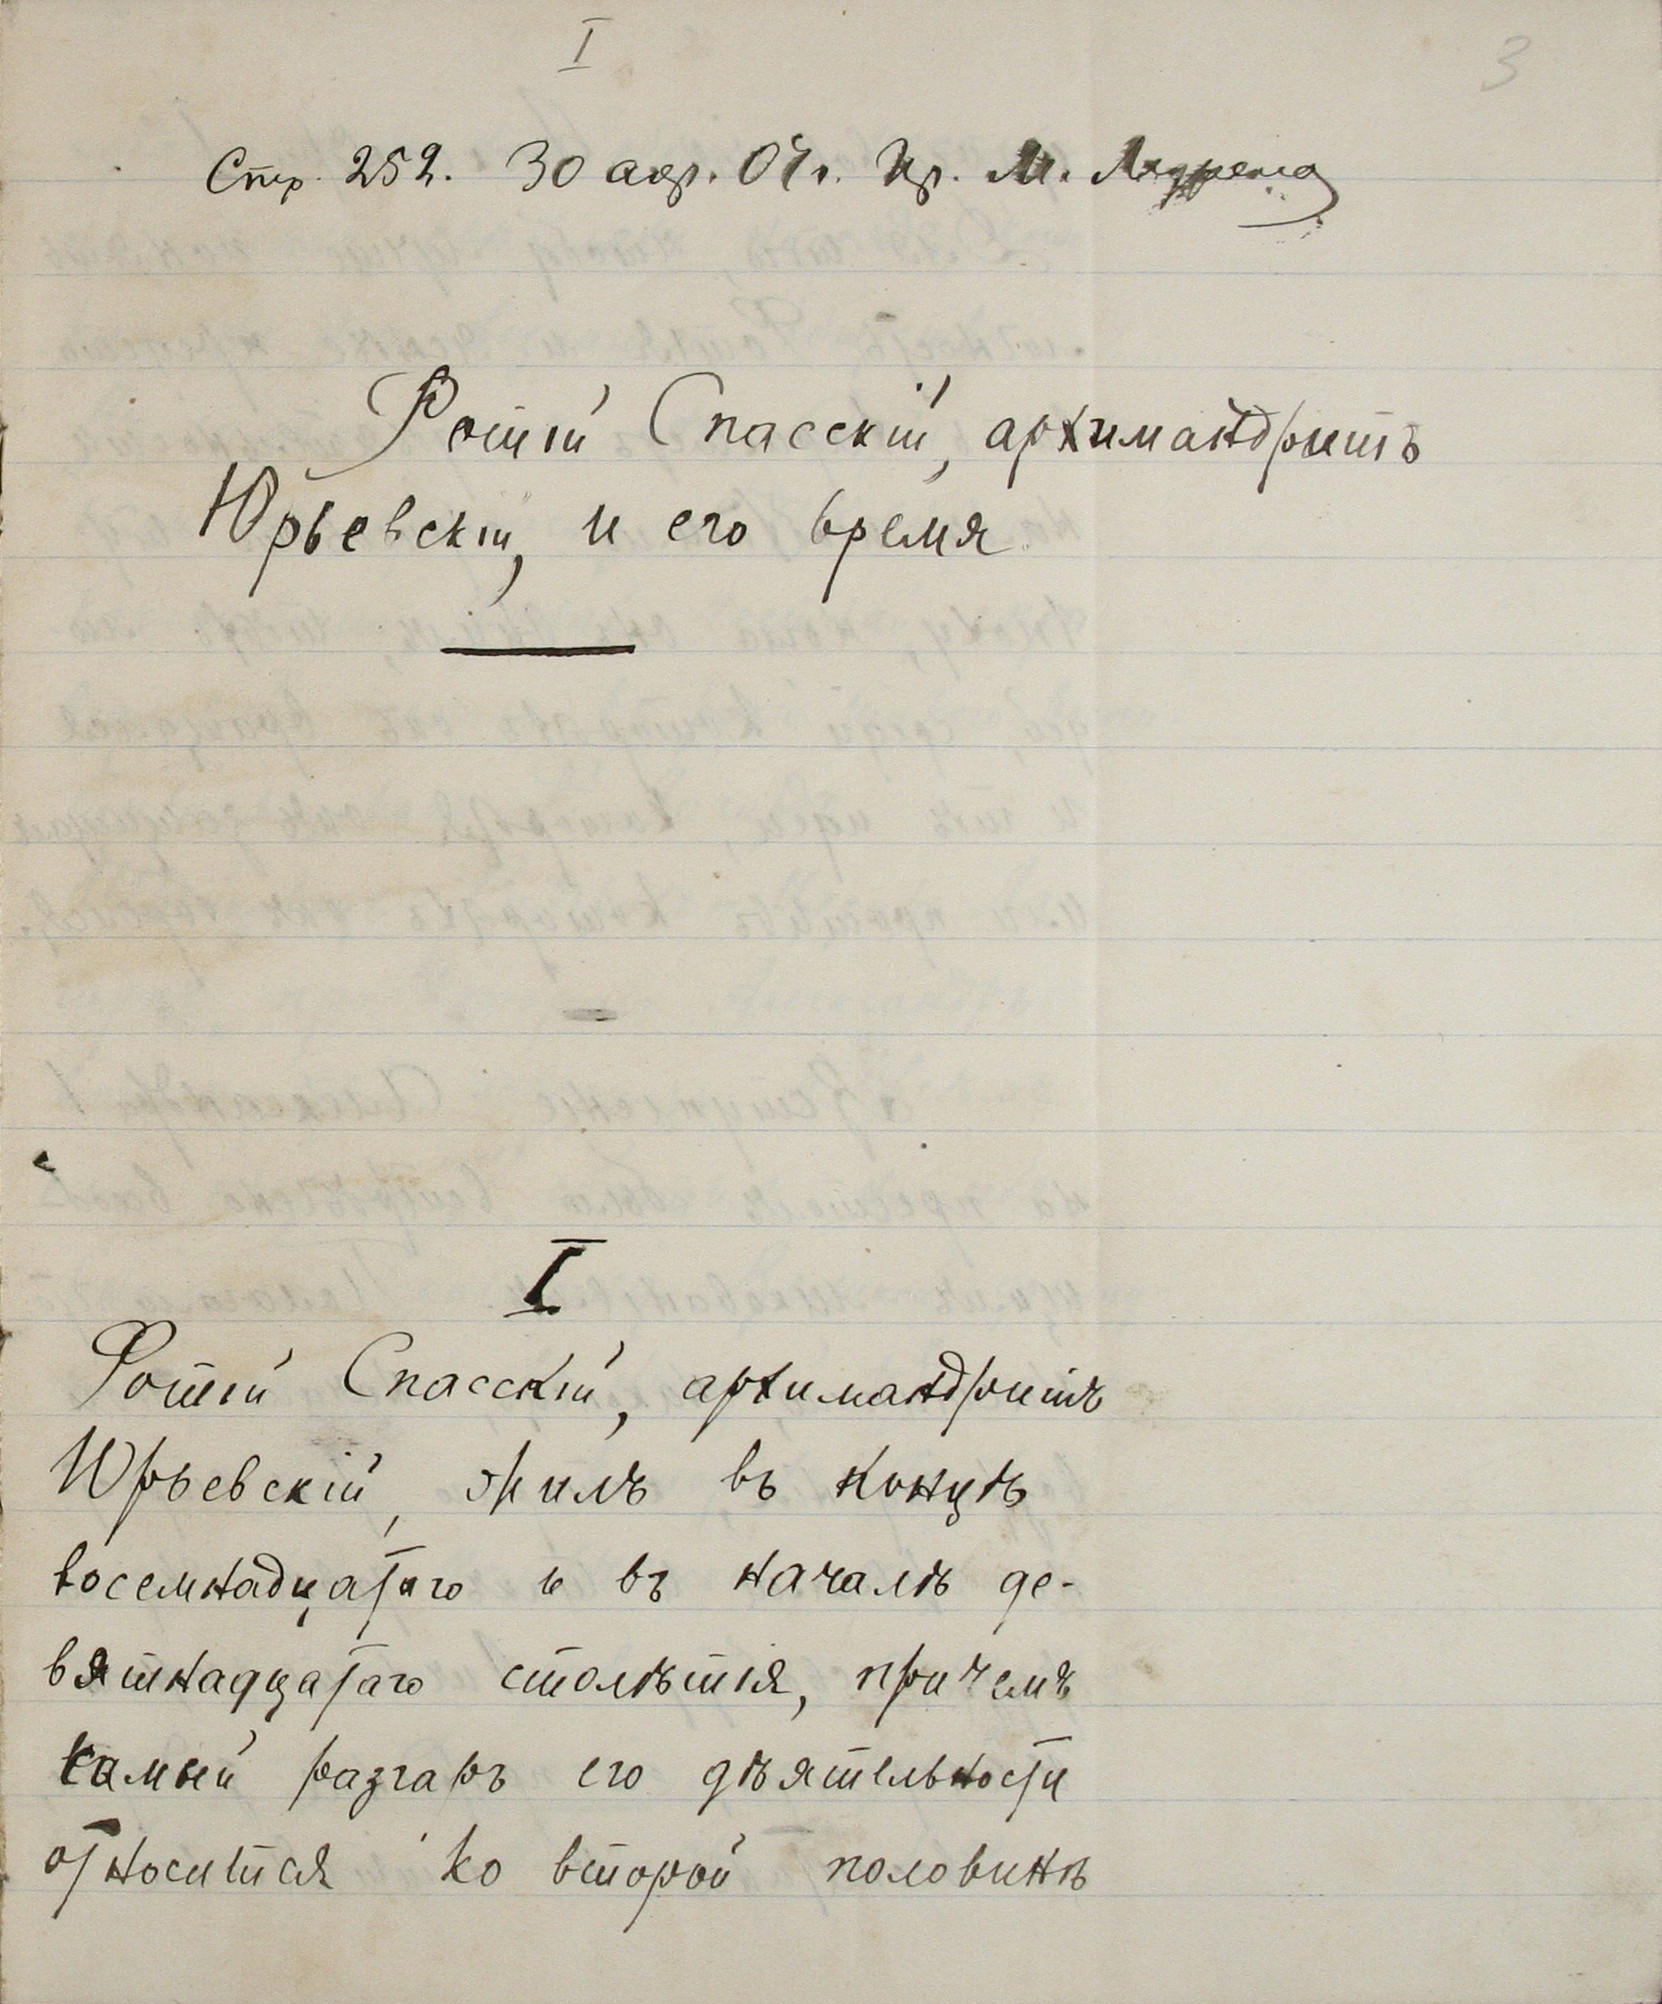 I
3
Стр. 252. 30 апр. 07г. Пр. М.
Фотій Спасскій, архимандритъ
Юрьевскій, и его время
I
Фотій Спасскій, архимандритъ
Юрьевскій, жилъ въ концѣ
восемнадцатаго и въ началѣ де-
вятнадцатаго столѣтія, причемъ
самый разгаръ его дѣятельности
относится ко второй половинѣ